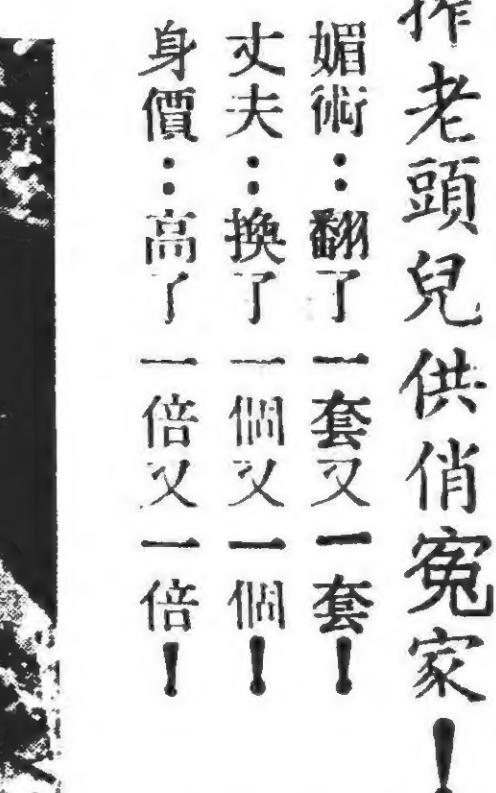 榨老頭兒供俏寃家！
媚術：翻了一套又一套！
丈夫：換了一個又一個！
身價：高了一倍又一倍！